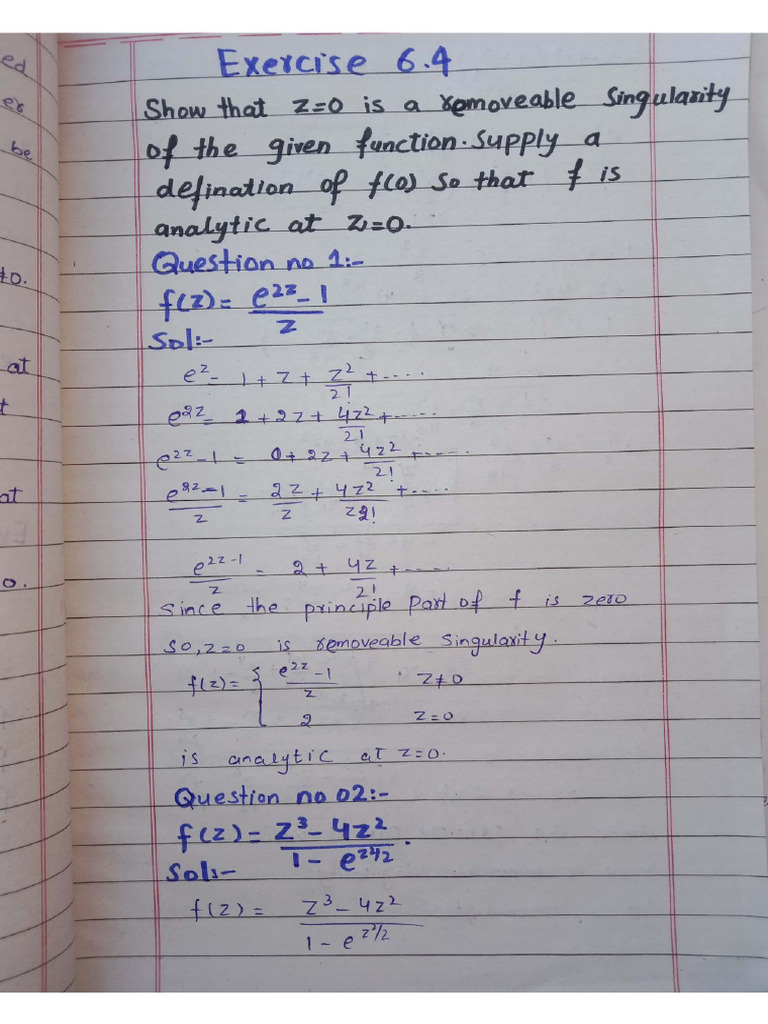 ed
er
be
to.
at
t
at
o.
Exercise 6.4
Show that z=0 is a removeable singularity
of the given function. Supply a
defination of f(0) so that f is
analytic at z=0.
Question no 1:-
f(z)= e^{2z}-1 / z
Sol:-
e^z = 1 + z + z^2/2! + ....
e^{2z} = 1 + 2z + 4z^2/2! + .....
e^{2z}-1 = 0+ 2z + 4z^2/2! + .....
e^{2z}-1 / z = 2z/z + 4z^2/z2! + ....
e^{2z}-1 / z = 2 + 4z/2! + .....
Since the principle part of f is zero
so, z=0 is removeable singularity.
f(z)= { e^{2z}-1 / z z≠0
2 z=0
is analytic at z=0.
Question no 02:-
f(z)= z^3-4z^2 / 1-e^{z^2/2}.
Sol:-
f(z)= z^3-4z^2 / 1-e^{z^2/2}